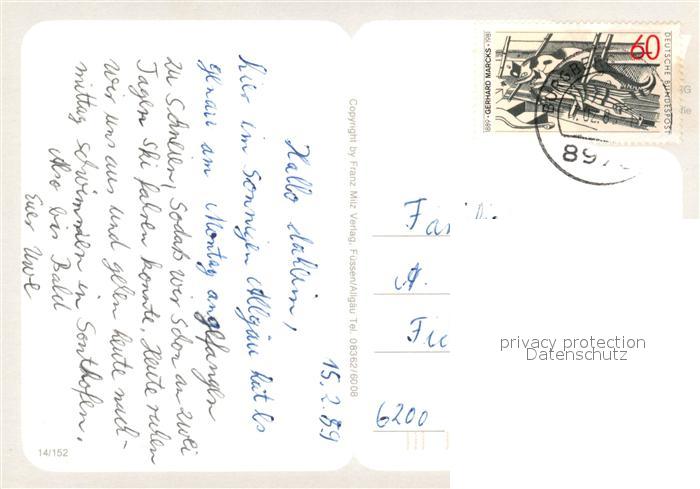 15.2.89
Hallo daheim,
hier im Sonnigen Allgäu hat es
genau am Montag angefangen
zu Schneien, Sodaß wir Schon an zwei
Tagen Ski fahren konnte. Heute ruhen
wir uns aus und gehen heute nach-
mittag schwimmen in Sonthofen.
Also bis Bald
Euer Uwe
14/152
Copyright by Franz Milz Verlag, Füssen/Allgäu Tel. 08362/6008
60
DEUTSCHE BUNDESPOST
GERHARD MARCKS
1889 1981
897
Fa
A.
Fic
6200
privacy protection
Datenschutz